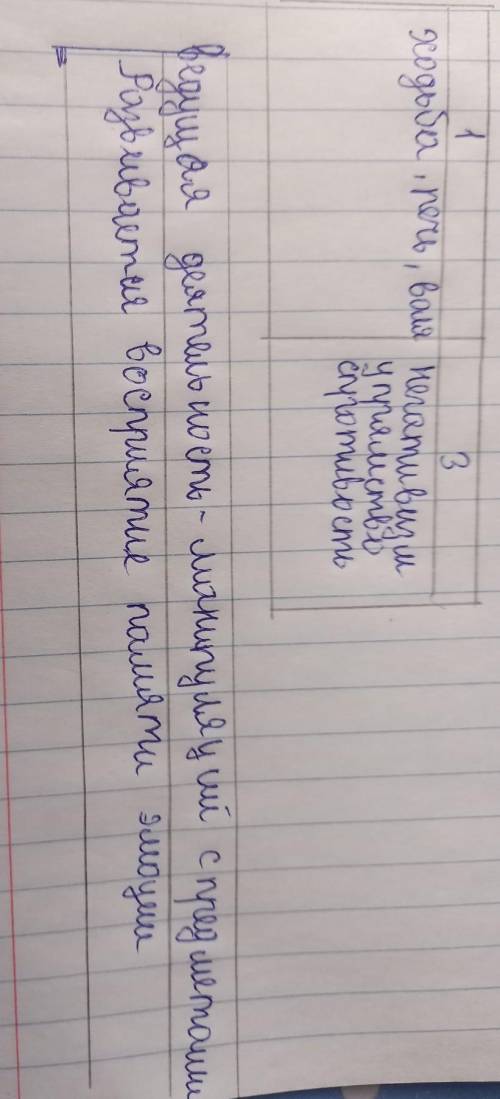 1
ходьба, речь, воля
3
негативизм
упрямство
строптивость
ведущая деятельность - манипуляций с предметами
Развивается восприятие памяти эмоции